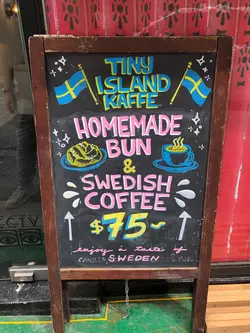 TINY
ISLAND
KAFFE
HOMEMADE
BUN
&
SWEDISH
COFFEE
$75~
enjoy a taste of
SWEDEN